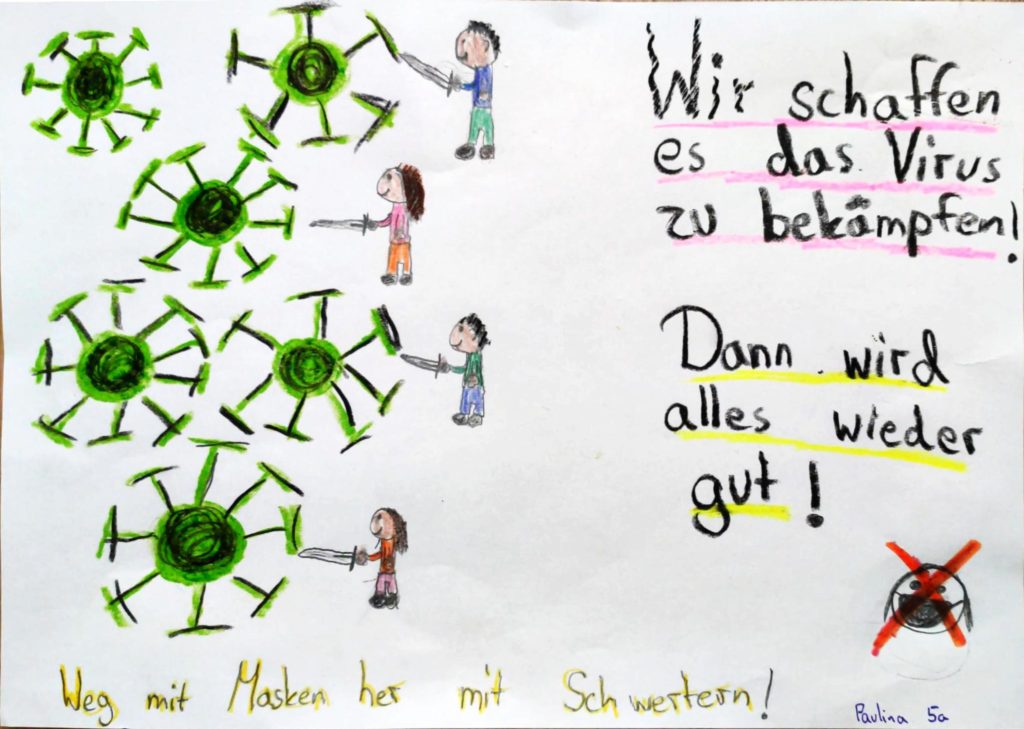 Wir schaffen
es das Virus
zu bekämpfen!
Dann wird
alles wieder
gut!
Weg mit Masken her mit Schwertern!
Paulina 5a